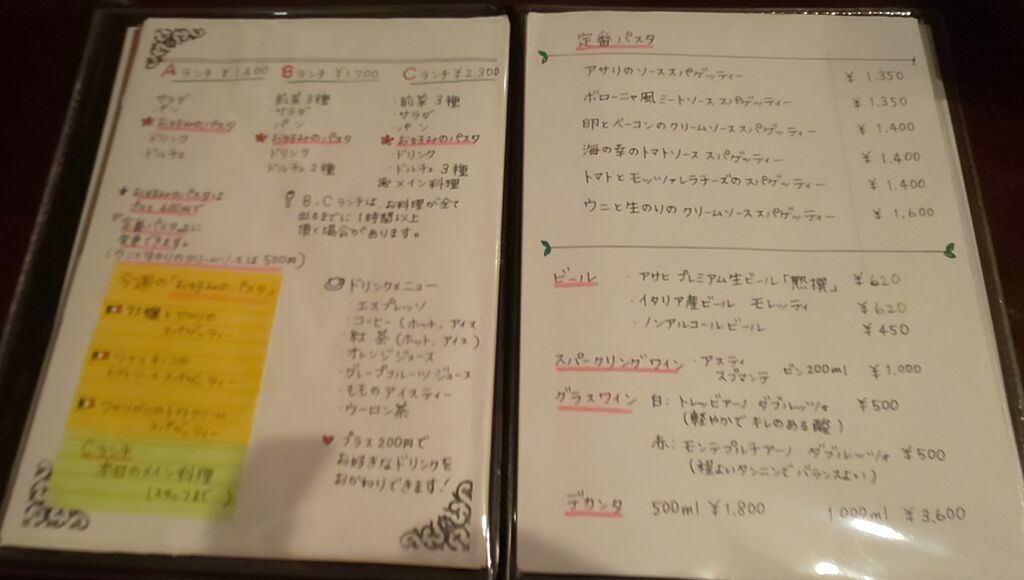 A ランチ ¥1.400
・サラダ
・パン
★お好みのパスタ
・ドリンク
・ドルチェ
B ランチ ¥1,700
・前菜3種
・サラダ
・パン
★お好みのパスタ
・ドリンク
・ドルチェ2種
C ランチ ¥2.300
・前菜3種
・サラダ
・パン
★お好みのパスタ
・ドリンク
・ドルチェ3種
メイン料理
★お好みのパスタは
プラス400円で
「定番パスタ」に
変更できます。
(ウニと生のりのクリームソースは500円)
B.Cランチは、お料理が全て
出るまでに1時間以上
頂く場合があります。
今週の「お好みのパスタ」
牡蠣と
スパゲッティー
ツナとキノコの
トマトソーススパゲッティー
ワタリガニのトマトクリーム
スパゲッティー
Cランチ
本日のメイン料理
(スタッフまで)
ドリンクメニュー
エスプレッソ
・コーヒー(ホット、アイス
・紅茶(ホット、アイス)
・オレンジジュース
・グレープフルーツジュース
・もものアイスティー
・ウーロン茶
♥プラス200円で
お好きなドリンクを
おかわりできます!
定番パスタ
アサリのソーススパゲッティー ¥1.350
ボローニャ風ミートソーススパゲッティー ¥1.350
卵とベーコンのクリームソーススパゲッティー ¥1.400
海の幸のトマトソーススパゲッティー ¥1.400
トマトとモッツァレラチーズのスパゲッティー ¥1.400
ウニと生のりのクリームソーススパゲッティー ¥1,600
ビール ・アサヒプレミアム生ビール「熟撰」 ¥620
・イタリア産ビール モレッティ ¥620
・ノンアルコールビール ¥450
スパークリングワイン ・アスティ
スプマンテ ビン200ml ¥1,000
グラスワイン 白:トレッビアーノ ダブルッツォ ¥500
(軽やかでキレのある酸)
赤:モンテプルチアーノ・ダブルッツォ ¥500
(程よいタンニンでバランスよい)
デカンタ 500ml ¥1.800 1000ml ¥3,600